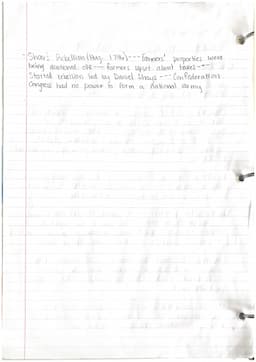 - Shay's Rebellion (Aug. 1786) --- farmers' properties were
being auctioned off --- farmers upset about taxes ---
Started rebellion led by Daniel Shays --- Confederation
Congress had no power to form a national army